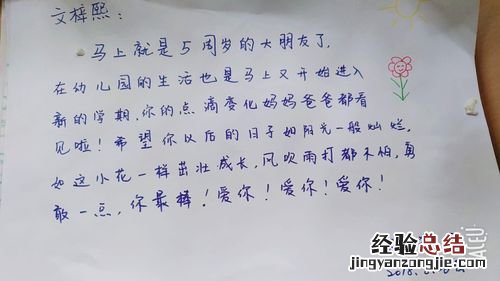 文梓熙:
马上就是5周岁的大朋友了,
在幼儿园的生活也是马上又开始进入
新的学期,你的点滴变化妈妈爸爸都看
见啦!希望你以后的日子如阳光一般灿烂,
如这小花一样茁壮成长,风吹雨打都不怕,勇
敢一点,你最棒!爱你!爱你!爱你!
经验总结
jingyanzongjie.com